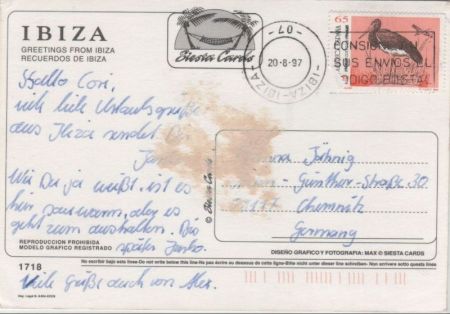 IBIZA
GREETINGS FROM IBIZA
RECUERDOS DE IBIZA
Siesta Cards
-07-
20-8-97
-IBIZA-IBIZA-
CONSIG
SUS ENVIOS EL
CODIGO POSTAL
65
Hallo Cori,
viele liebe Urlaubsgrüße
aus Ibiza sendet Dir
Janko
Wie Du ja weißt, ist es
hier sauwarm, aber es
geht zum aushalten. Bis
später Janko.
Viele Grüße auch von Alex.
© Siesta Cards
Jähnig
-Günther-Straße 30
Chemnitz
Germany
REPRODUCCION PROHIBIDA
MODELO GRAFICO REGISTRADO
DISEÑO GRAFICO Y FOTOGRAFIA: MAX © SIESTA CARDS
1718
No escribir bajo esta linea-Do not write below this line-Ne pas écrire au dessous de cette ligne-Bitte nicht unter dieser linie schreiben-Non scrivere sotto questa linea